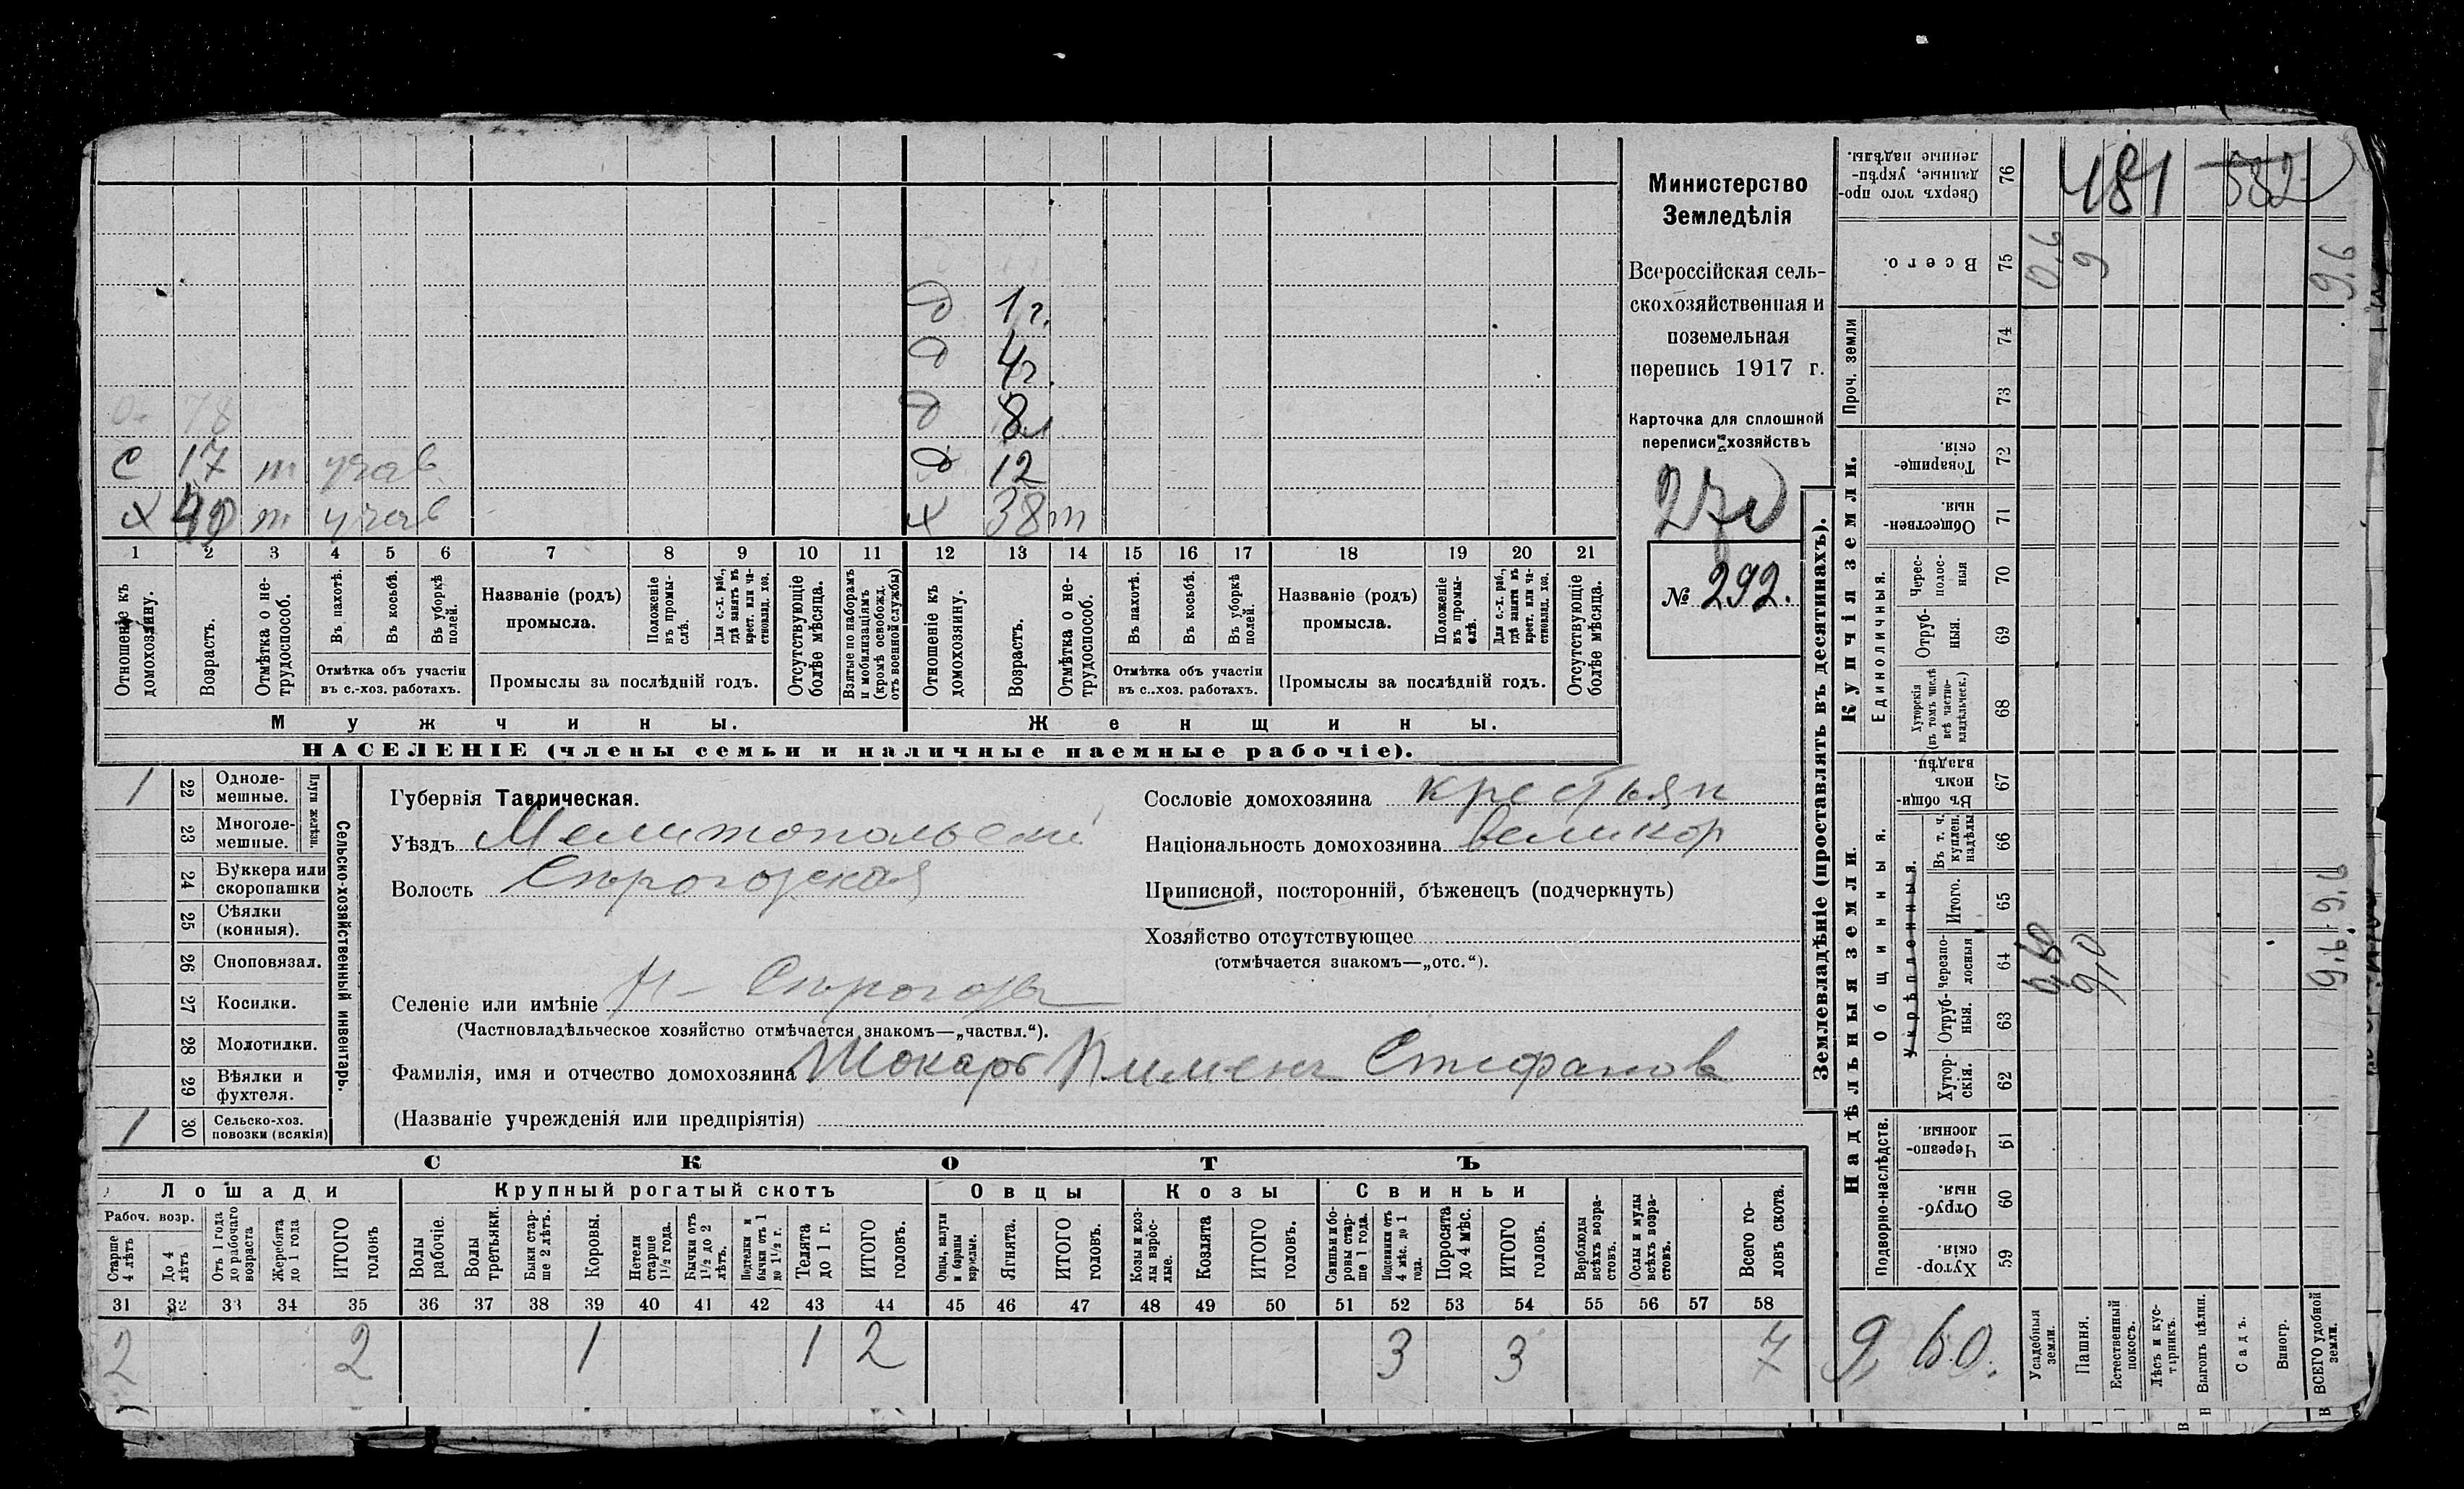 Министерство
Земледѣлія
Всероссійская сель-
скохозяйственная и
поземельная
перепись 1917 г.
Карточка для сплошной
переписи хозяйствъ
270
№ 292.
д 1 г.
д 4 г.
д 8 л
д 12
С 17 т учав
Х 40 т учав Х 38 т
1 2 3 4 5 6 7 8 9 10 11 12 13 14 15 16 17 18 19 20 21
Отношеніе къ домохозяину.
Возрастъ.
Отмѣтка о не-трудоспособ.
Въ пахотѣ.
Въ косьбѣ.
Въ уборкѣ полей.
Отмѣтка объ участіи въ с.-хоз. работахъ.
Названіе (родъ) промысла.
Положеніе въ промы-слѣ.
Для с.-х. раб., гдѣ занятъ въ крест. или ча-стновлад. хоз.
Промыслы за послѣдній годъ.
Отсутствующіе болѣе мѣсяца.
Взятые по наборамъ и мобилизаціямъ (кромѣ освобожд. отъ военной службы)
Отношеніе къ домохозяину.
Возрастъ.
Отмѣтка о не-трудоспособ.
Въ пахотѣ.
Въ косьбѣ.
Въ уборкѣ полей.
Отмѣтка объ участіи въ с.-хоз. работахъ.
Названіе (родъ) промысла.
Положеніе въ промы-слѣ.
Для с.-х. раб., гдѣ занята въ крест. или ча-стновлад. хоз.
Промыслы за послѣдній годъ.
Отсутствующіе болѣе мѣсяца.
Мужчины. Женщины.
НАСЕЛЕНІЕ (члены семьи и наличные наемные рабочіе).
1 22 Одноле-мешные.
23 Многоле-мешные.
Плуги желѣзн.
24 Буккера или скоропашки
25 Сѣялки (конныя).
26 Сноповязал.
27 Косилки.
28 Молотилки.
29 Вѣялки и фухтеля.
1 30 Сельско-хоз. повозки (всякія)
Сельско-хозяйственный инвентарь.
Губернія Таврическая.
Уѣздъ Мелитопольскій
Волость Сѣрогозская
Селеніе или имѣніе Н-Сѣрогозы
(Частновладѣльческое хозяйство отмѣчается знакомъ—„частвл.“).
Фамилія, имя и отчество домохозяина Пименъ Стефанов
(Названіе учрежденія или предпріятія)
Сословіе домохозяина крестьян
Національность домохозяина великор
Приписной, посторонній, бѣженецъ (подчеркнуть)
Хозяйство отсутствующее
(отмѣчается знакомъ—„отс.“).
СКОТЪ
Лошади Крупный рогатый скотъ Овцы Козы Свиньи
Рабоч. возр.
Старше 4 лѣтъ
До 4 лѣтъ
Отъ 1 года до рабочаго возраста
Жеребята до 1 года
ИТОГО головъ
Волы рабочіе.
Волы третьяки.
Быки стар-ше 2 лѣтъ.
Коровы.
Нетели старше 1½ года.
Бычки отъ 1½ до 2 лѣтъ.
Подтелки и бычки отъ 1 до 1½ г.
Телята до 1 г.
ИТОГО головъ.
Овцы, валухи и бараны взрослые.
Ягнята.
ИТОГО головъ.
Козы и коз-лы взрос-лые.
Козлята
ИТОГО головъ.
Свиньи и бо-ровы стар-ше 1 года.
Подсвинки отъ 4 мѣс. до 1 года.
Поросята до 4 мѣс.
ИТОГО головъ.
Верблюды всѣхъ возра-стовъ.
Ослы и мулы всѣхъ возра-стовъ.
Всего го-ловъ скота.
31 32 33 34 35 36 37 38 39 40 41 42 43 44 45 46 47 48 49 50 51 52 53 54 55 56 57 58
2 2 1 1 2 3 3 7
Землевладѣніе (проставлять въ десятинахъ).
Надѣльныя земли. Купчія земли. Проч. земли
Подворно-наслѣдств. Общинныя. Укрѣпленныя. Единоличныя.
Хутор-скія. 59
Отруб-ныя. 60
Черезпо-лосныя. 61
Хутор-скія. 62
Отруб-ныя. 63
Черезпо-лосныя 64
Итого. 65
Въ т. ч. куплен. надѣлы 66
Въ общин-номъ владѣн. 67
Хуторскія (въ томъ числѣ всѣ частно-владѣльческ.) 68
Отруб-ныя. 69
Черес-полос-ныя 70
Обществен-ныя 71
Товарище-скія. 72
73
74
Всего. 75
Сверхъ того про-данные, укрѣп-ленные надѣлы. 76
481 532
0,6 9 9,6
9,0 9,6 9,6
9,60.
Усадебныя земли.
Пашня.
Естественный покосъ.
Лѣсъ и кус-тарникъ.
Выгонъ цѣлин.
Садъ.
Виногр.
ВСЕГО удобной земли.